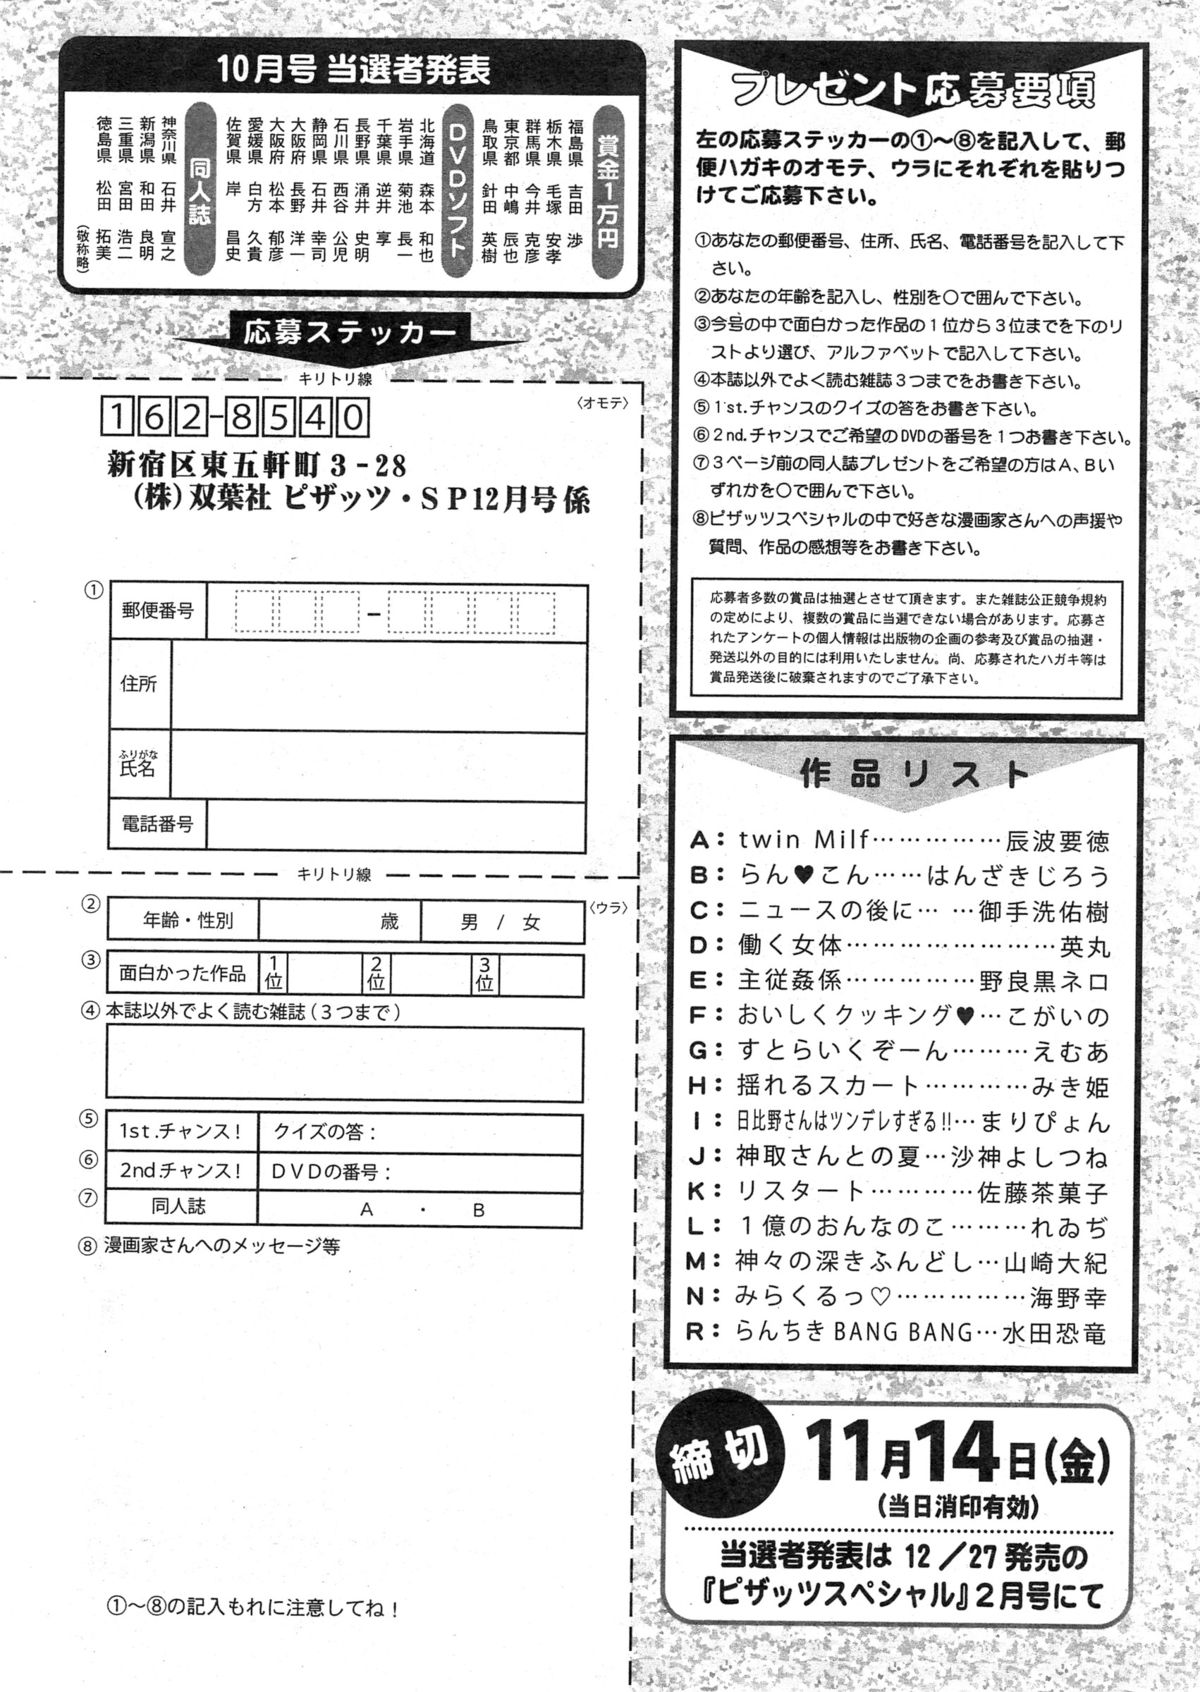 10月号 当選者発表
賞金1万円
福島県 吉田 渉
栃木県 毛塚 安孝
群馬県 今井 克彦
東京都 中嶋 辰也
鳥取県 針田 英樹
DVDソフト
北海道 森本 和也
岩手県 菊池 長一
千葉県 逆井 享
長野県 涌井 史明
石川県 西谷 公児
静岡県 石井 幸司
大阪府 長野 洋一
大阪府 松本 郁彦
愛媛県 白方 久貴
佐賀県 岸 昌史
同人誌
神奈川県 石井 宣之
新潟県 和田 良明
三重県 宮田 浩二
徳島県 松田 拓美
(敬称略)
応募ステッカー
キリトリ線
〈オモテ〉
162-8540
新宿区東五軒町3-28
(株)双葉社 ピザッツ・SP12月号係
①
郵便番号
-
住所
ふりがな
氏名
電話番号
キリトリ線
〈ウラ〉
② 年齢・性別 歳 男 / 女
③ 面白かった作品 1位 2位 3位
④ 本誌以外でよく読む雑誌(3つまで)
⑤ 1st.チャンス! クイズの答:
⑥ 2ndチャンス! DVDの番号:
⑦ 同人誌 A ・ B
⑧ 漫画家さんへのメッセージ等
①〜⑧の記入もれに注意してね!
プレゼント応募要項
左の応募ステッカーの①〜⑧を記入して、郵
便ハガキのオモテ、ウラにそれぞれを貼りつ
けてご応募下さい。
①あなたの郵便番号、住所、氏名、電話番号を記入して下
さい。
②あなたの年齢を記入し、性別を○で囲んで下さい。
③今号の中で面白かった作品の1位から3位までを下のリ
ストより選び、アルファベットで記入して下さい。
④本誌以外でよく読む雑誌3つまでをお書き下さい。
⑤1st.チャンスのクイズの答をお書き下さい。
⑥2nd.チャンスでご希望のDVDの番号を1つお書き下さい。
⑦3ページ前の同人誌プレゼントをご希望の方はA、Bい
ずれかを○で囲んで下さい。
⑧ピザッツスペシャルの中で好きな漫画家さんへの声援や
質問、作品の感想等をお書き下さい。
応募者多数の賞品は抽選とさせて頂きます。また雑誌公正競争規約
の定めにより、複数の賞品に当選できない場合があります。応募さ
れたアンケートの個人情報は出版物の企画の参考及び賞品の抽選・
発送以外の目的には利用いたしません。尚、応募されたハガキ等は
賞品発送後に破棄されますのでご了承下さい。
作品リスト
A:twin Milf……………辰波要徳
B:らん♥こん……はんざきじろう
C:ニュースの後に… …御手洗佑樹
D:働く女体……………………英丸
E:主従姦係……………野良黒ネロ
F:おいしくクッキング♥…こがいの
G:すとらいくぞーん………えむあ
H:揺れるスカート…………みき姫
I:日比野さんはツンデレすぎる!!…まりぴょん
J:神取さんとの夏…沙神よしつね
K:リスタート…………佐藤茶菓子
L:1億のおんなのこ………れゐぢ
M:神々の深きふんどし…山崎大紀
N:みらくるっ♡……………海野幸
R:らんちきBANG BANG…水田恐竜
締切
11月14日(金)
(当日消印有効)
当選者発表は 12/27発売の
『ピザッツスペシャル』2月号にて